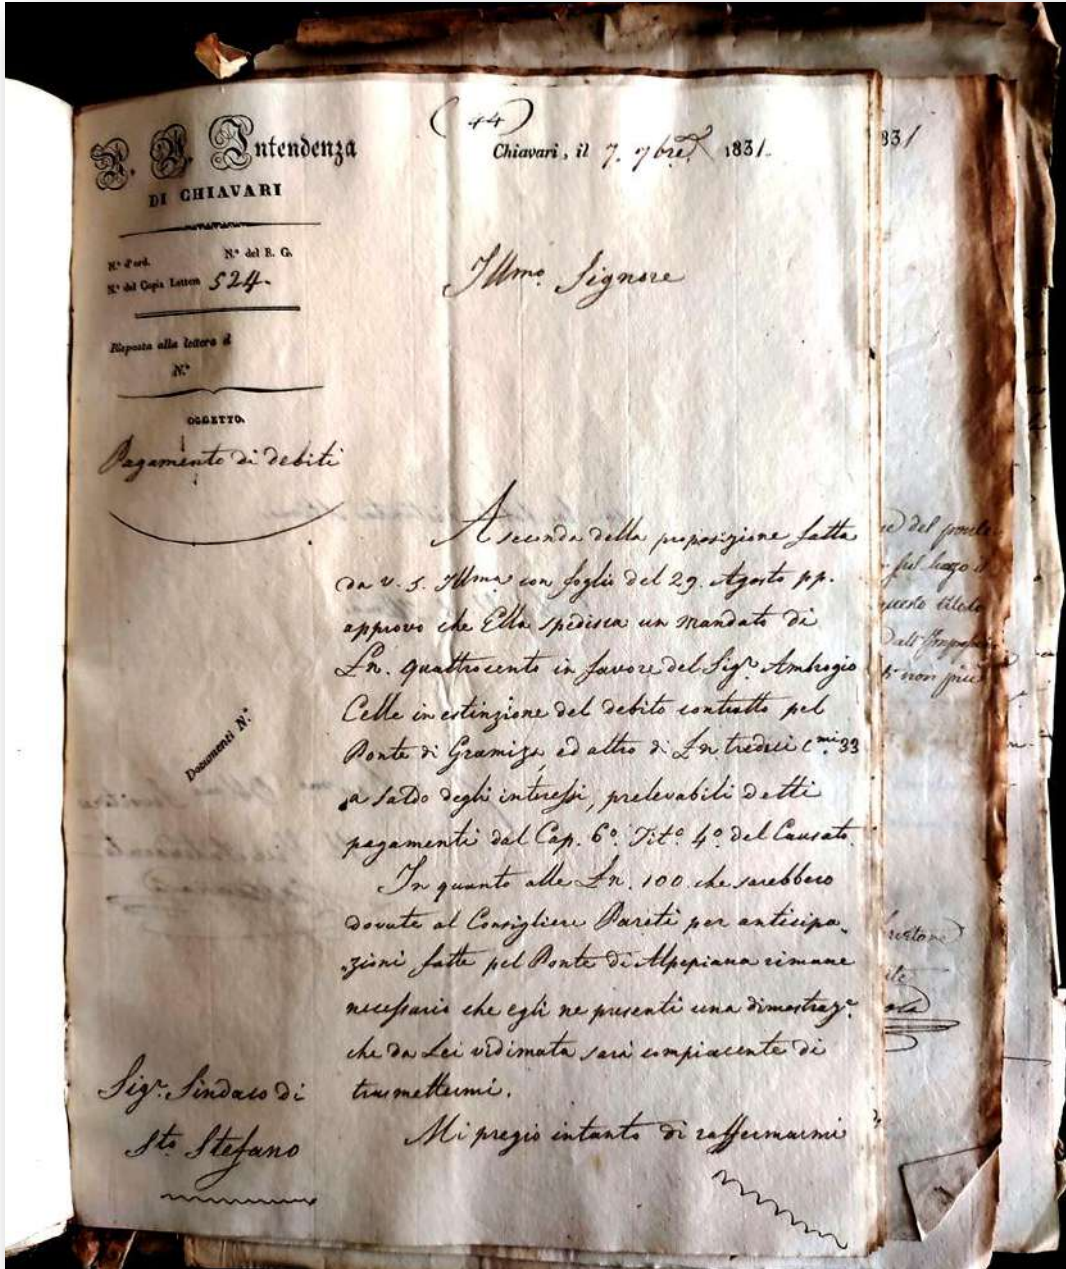 (44)
R. I. Intendenza
DI CHIAVARI
Chiavari, il 7. 7bre 1831.
N.° d'ord. N.° del R. G.
N.° del Copia Lettere 524.
Risposta alla lettera d
N.°
OGGETTO.
Pagamento di debiti
Documenti N.°
Illmo. Signore
A seconda della proposizione fatta
da V. S. Illma con foglio del 29. Agosto pp.
approvo che Ella spedisca un mandato di
Ln. quattrocento in favore del Sigr. Ambrogio
Celle in estinzione del debito contratto pel
Ponte di Gramiza ed altro di Ln tredici cmi. 33
a saldo degli interessi, prelevabili detti
pagamenti dal Cap. 6° Tit° 4° del Causato.
In quanto alle Ln. 100 che sarebbero
dovute al Consigliere Pareti per anticipa-
-zioni fatte pel Ponte di Alpepiana rimane
necessario che egli ne presenti una dimostraze.
che da Lei vidimata sarà compiacente di
trasmettermi.
Mi pregio intanto di raffermarmi
Sigr. Sindaco di
Sto Stefano
831
del
questo titolo
non più